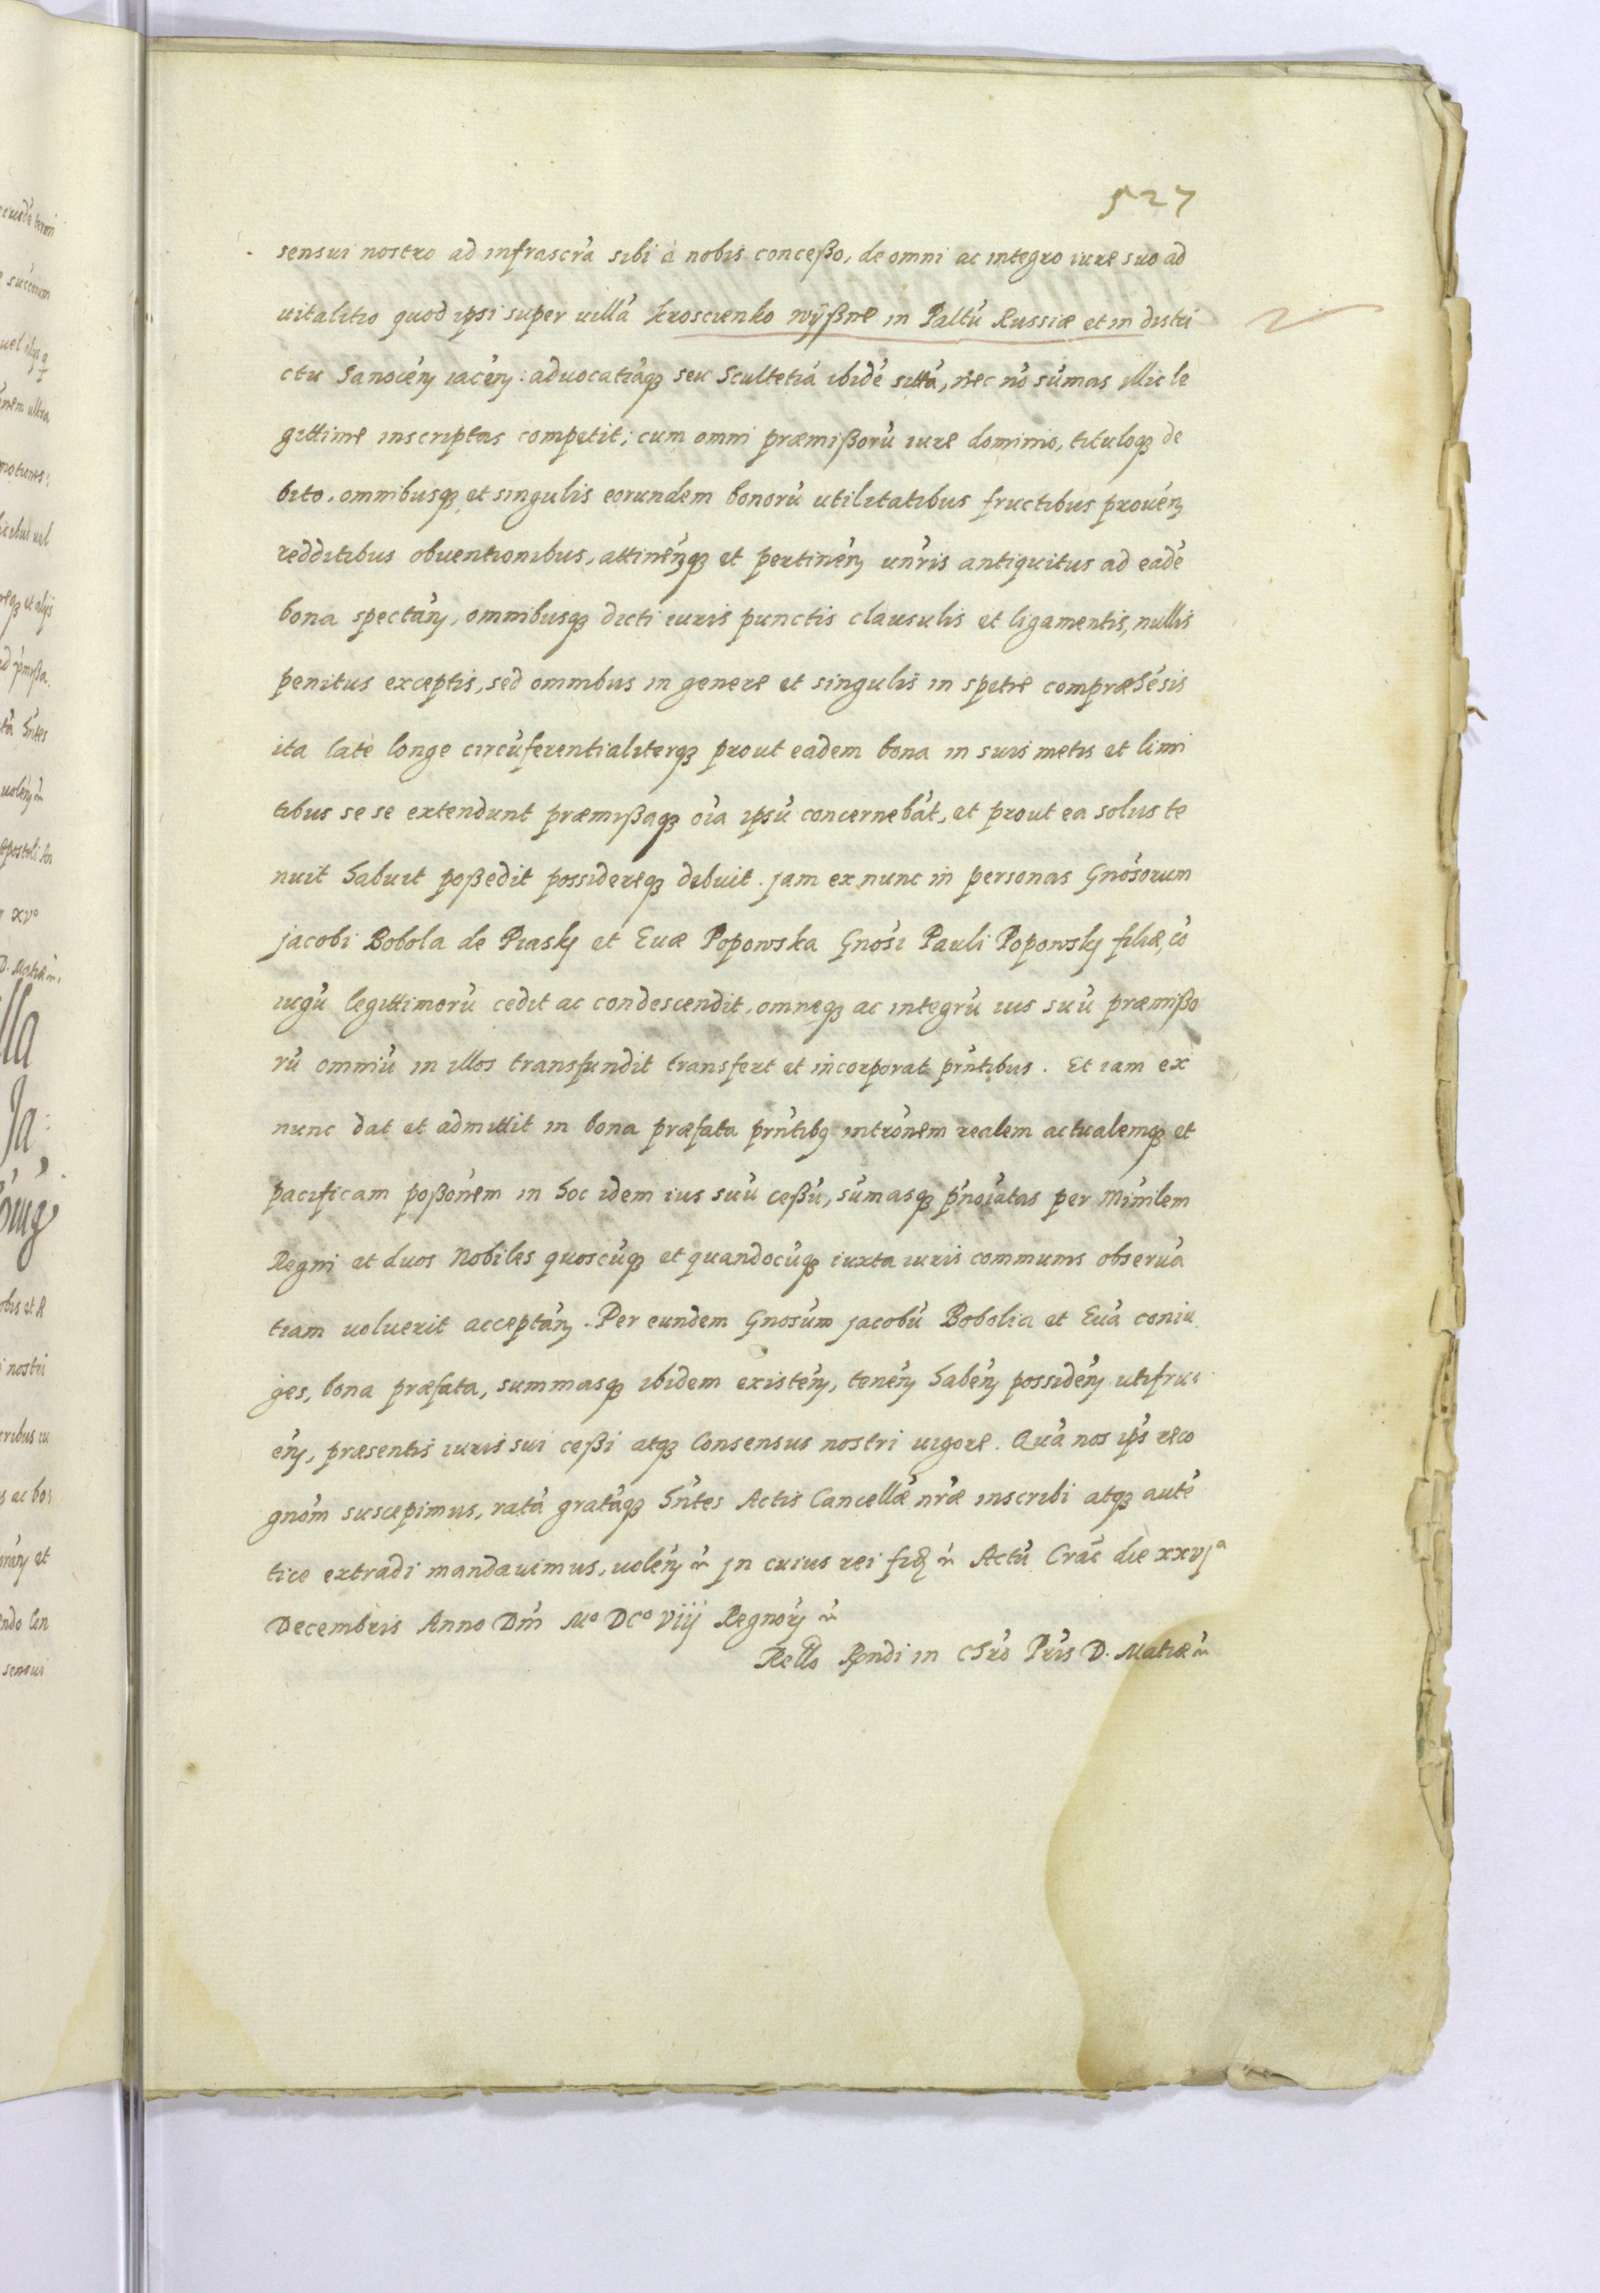 527
sensui nostro ad infrascr̃a sibi à nobis conceßo, de omni ac integro iure suo ad
uitalitio quod ipsi super uillã Kroscienko Wÿßne in Paltũ Russiæ et in distri
ctu Sanoceñ iaceñ: aduocatiãqȝ seu Scultetiã ibidẽ sittã, nec nõ sũmas illic le
gittime inscriptas competit; cum omni præmißorũ iure dominio, tituloqȝ de
bito, omnibusqȝ et singulis eorundem bonorũ utilitatibus fructibus prouẽn
redditibus obuentionibus, attinẽnqȝ et pertinẽn uñris antiquitus ad eadẽ
bona spectãn, omnibusqȝ dicti iuris punctis clausulis et ligamentis, nullis
penitus exceptis, sed omnibus in genere et singulis in spetie compræhẽsis
ita latè longe circũferentialiterqȝ prout eadem bona in suis metis et limi
tibus se se extendunt præmißaqȝ oĩa ipsũ concernebãt, et prout ea solus te
nuit habuit poßedit possidereqȝ debuit. Jam ex nunc in personas Gñosorum
Jacobi Bobola de Piasky et Euæ Popowska Gñosi Pauli Popowsky filiæ, cõ
iugũ legittimorũ cedit ac condescendit, omneqȝ ac integrũ ius suũ præmißo
rũ omniũ in illos transfundit transfert et incorporat pñtibus. Et iam ex
nunc dat et admittit in bona præfata pñtibꝯ intrõnem realem actualemqȝ et
pacificam poßõnem in hoc idem ius suũ ceßũ, sũmasqȝ p̃noĩatas per Miñlem
Regni et duos Nobiles quoscũqȝ et quandocũqȝ iuxta iuris communis obseruã
tiam uoluerit acceptãn. Per eundem Gñosum Jacobũ Bobolia et Euã coniu
ges, bona præfata, summasqȝ ibidem existẽn, tenẽn habẽn possidẽn utifrue
ẽn, præsentis iuris sui ceßi atqȝ Consensus nostri uigore. Quã nos ip̃s reco
gnõm suscepimus, ratã gratãqȝ hñtes Actis Cancellæ ñræ inscribi atqȝ autẽ
tice extradi mandauimus, uolẽn ñ Jn cuius rei fidȝ ñ Actũ Crac̃ die xxvjª
Decembris Anno Dñi Mº DCº Viij Regnoꝝ ñ
Rello Rñdi in Chr̃o Pr̃is D. Matiæ ñ